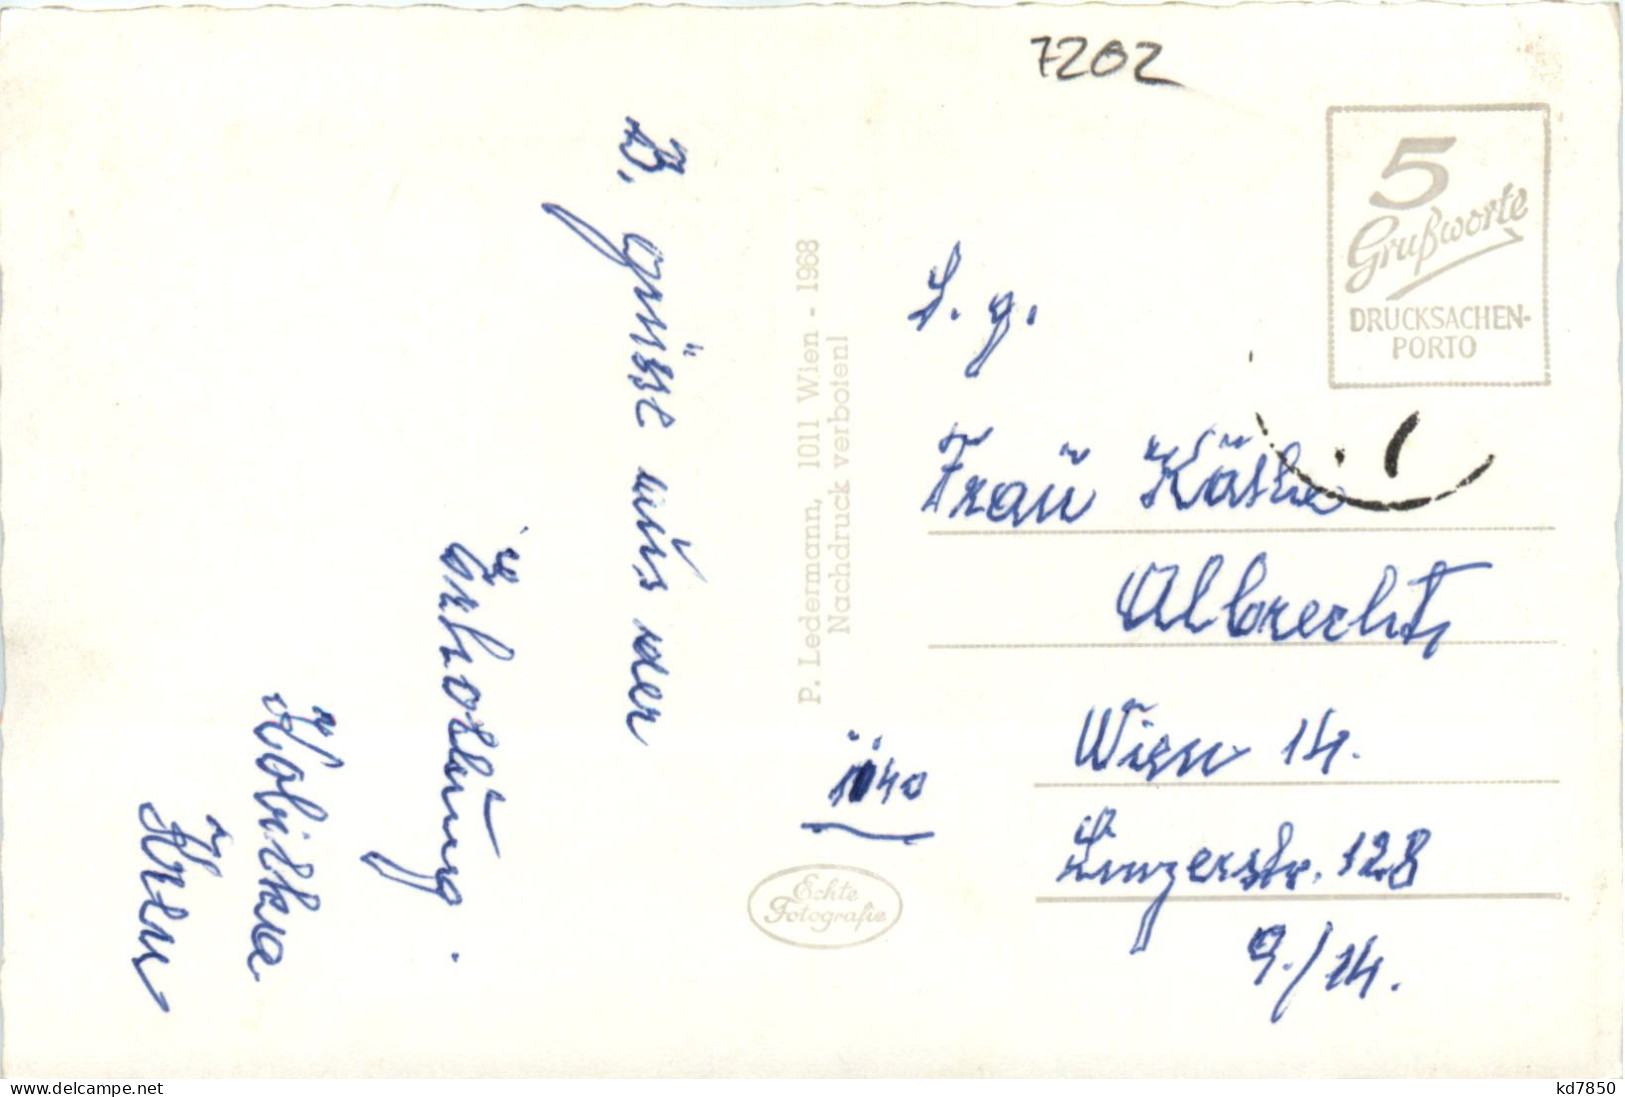 7202
5
Grußworte
DRUCKSACHEN-
PORTO
B. grüsse aus der
Erholung.
Kobilka
P. Ledermann, 1011 Wien - 1968
Nachdruck verboten!
Echte
Fotografie
1140
Frau Käthe
Albrecht
Wien 14.
Linzerstr. 128
9./14.
www.delcampe.net
kd7850